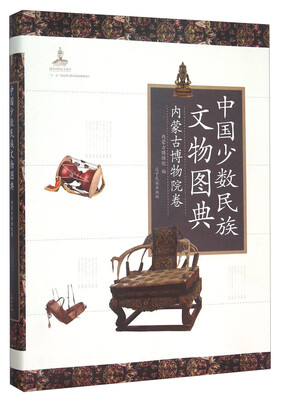 中国少数民族
文物图典
内蒙古博物院卷
内蒙古博物院 编
辽宁民族出版社
中国少数民族文物图典